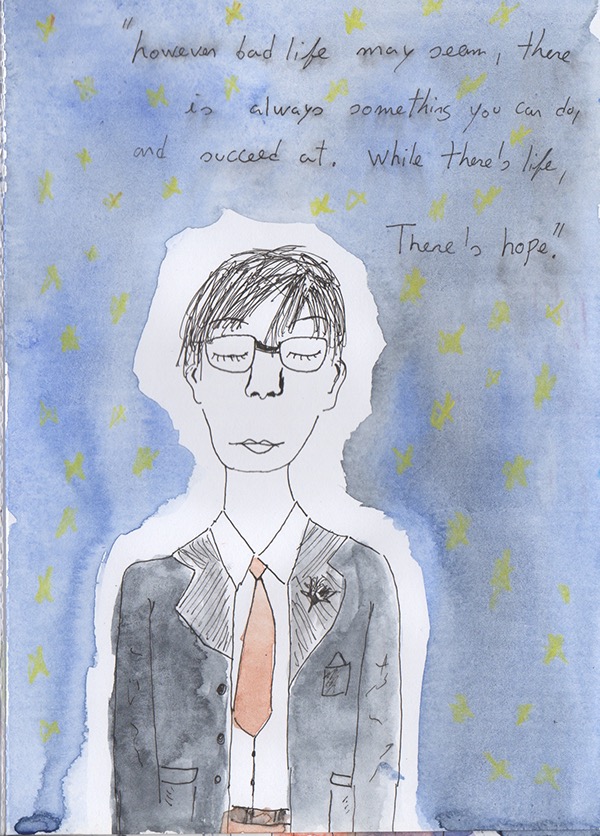 "however bad life may seem, there
is always something you can do,
and succeed at. While there's life,
There's hope."